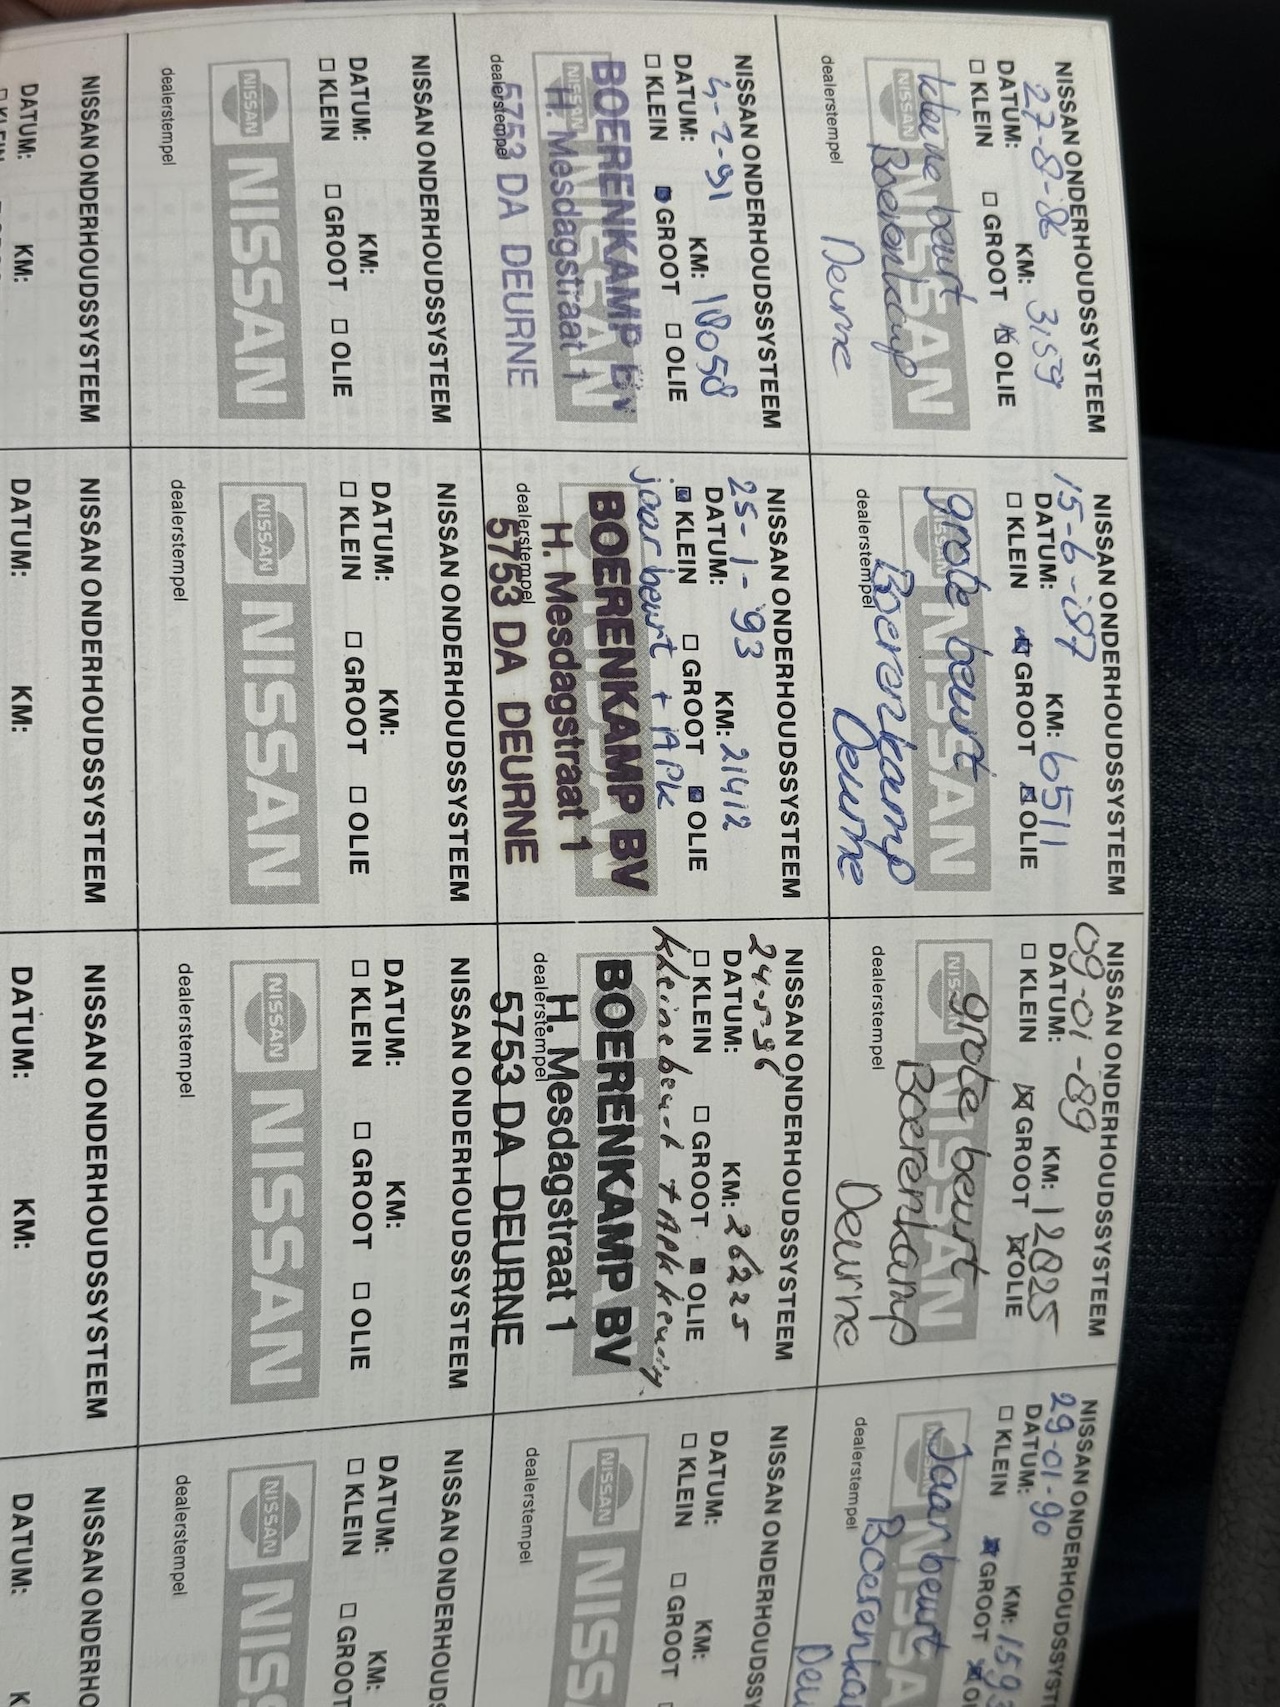 NISSAN ONDERHOUDSSYSTEEM
27-8-86 3159
DATUM: KM:
□ KLEIN □ GROOT □ OLIE
kleine beurt
NISSAN NISSAN
Boerenkamp
Deurne
dealerstempel
NISSAN ONDERHOUDSSYSTEEM
15-6-'87 6511
DATUM: KM:
□ KLEIN □ GROOT □ OLIE
grote beurt
NISSAN NISSAN
Boerenkamp
Deurne
dealerstempel
NISSAN ONDERHOUDSSYSTEEM
09-01-89 12025
DATUM: KM:
□ KLEIN □ GROOT □ OLIE
grote beurt
NISSAN NISSAN
Boerenkamp
Deurne
dealerstempel
NISSAN ONDERHOUDSSYST
29-01-90
DATUM: KM: 1593
□ KLEIN □ GROOT □ OL
Jaarbeurt
NISSA
Boerenka
Deu
dealerstempel
NISSAN ONDERHOUDSSYSTEEM
-91 18058
DATUM: KM:
□ KLEIN □ GROOT □ OLIE
BOERENKAMP BV
NISSAN NISSAN
H. Mesdagstraat 1
5753 DA DEURNE
dealerstempel
NISSAN ONDERHOUDSSYSTEEM
25-1-'93 21412
DATUM: KM:
□ KLEIN □ GROOT □ OLIE
jaarbeurt + APK
BOERENKAMP BV
H. Mesdagstraat 1
5753 DA DEURNE
dealerstempel
NISSAN ONDERHOUDSSYSTEEM
24-5-96 26225
DATUM: KM:
□ KLEIN □ GROOT □ OLIE
kleine beurt + APK keuring.
BOERENKAMP BV
H. Mesdagstraat 1
5753 DA DEURNE
dealerstempel
NISSAN ONDERHOUDSSY
DATUM: KM:
□ KLEIN □ GROOT
NISSAN NISSA
dealerstempel
NISSAN ONDERHOUDSSYSTEEM
DATUM: KM:
□ KLEIN □ GROOT □ OLIE
NISSAN NISSAN
dealerstempel
NISSAN ONDERHOUDSSYSTEEM
DATUM: KM:
□ KLEIN □ GROOT □ OLIE
NISSAN NISSAN
dealerstempel
NISSAN ONDERHOUDSSYSTEEM
DATUM: KM:
□ KLEIN □ GROOT □ OLIE
NISSAN NISSAN
dealerstempel
NISSAN ONDERHOUDS
DATUM: KM:
□ KLEIN □ GROOT
NISSAN NIS
dealerstempel
NISSAN ONDERHOUDSSYSTEEM
DATUM: KM:
□ KLEIN
NISSAN ONDERHOUDSSYSTEEM
DATUM: KM:
NISSAN ONDERHOUDSSYSTEEM
DATUM: KM:
NISSAN ONDERHO
DATUM: K